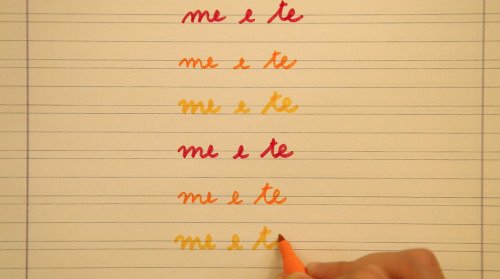 me e te
me e te
me e te
me e te
me e te
me e te